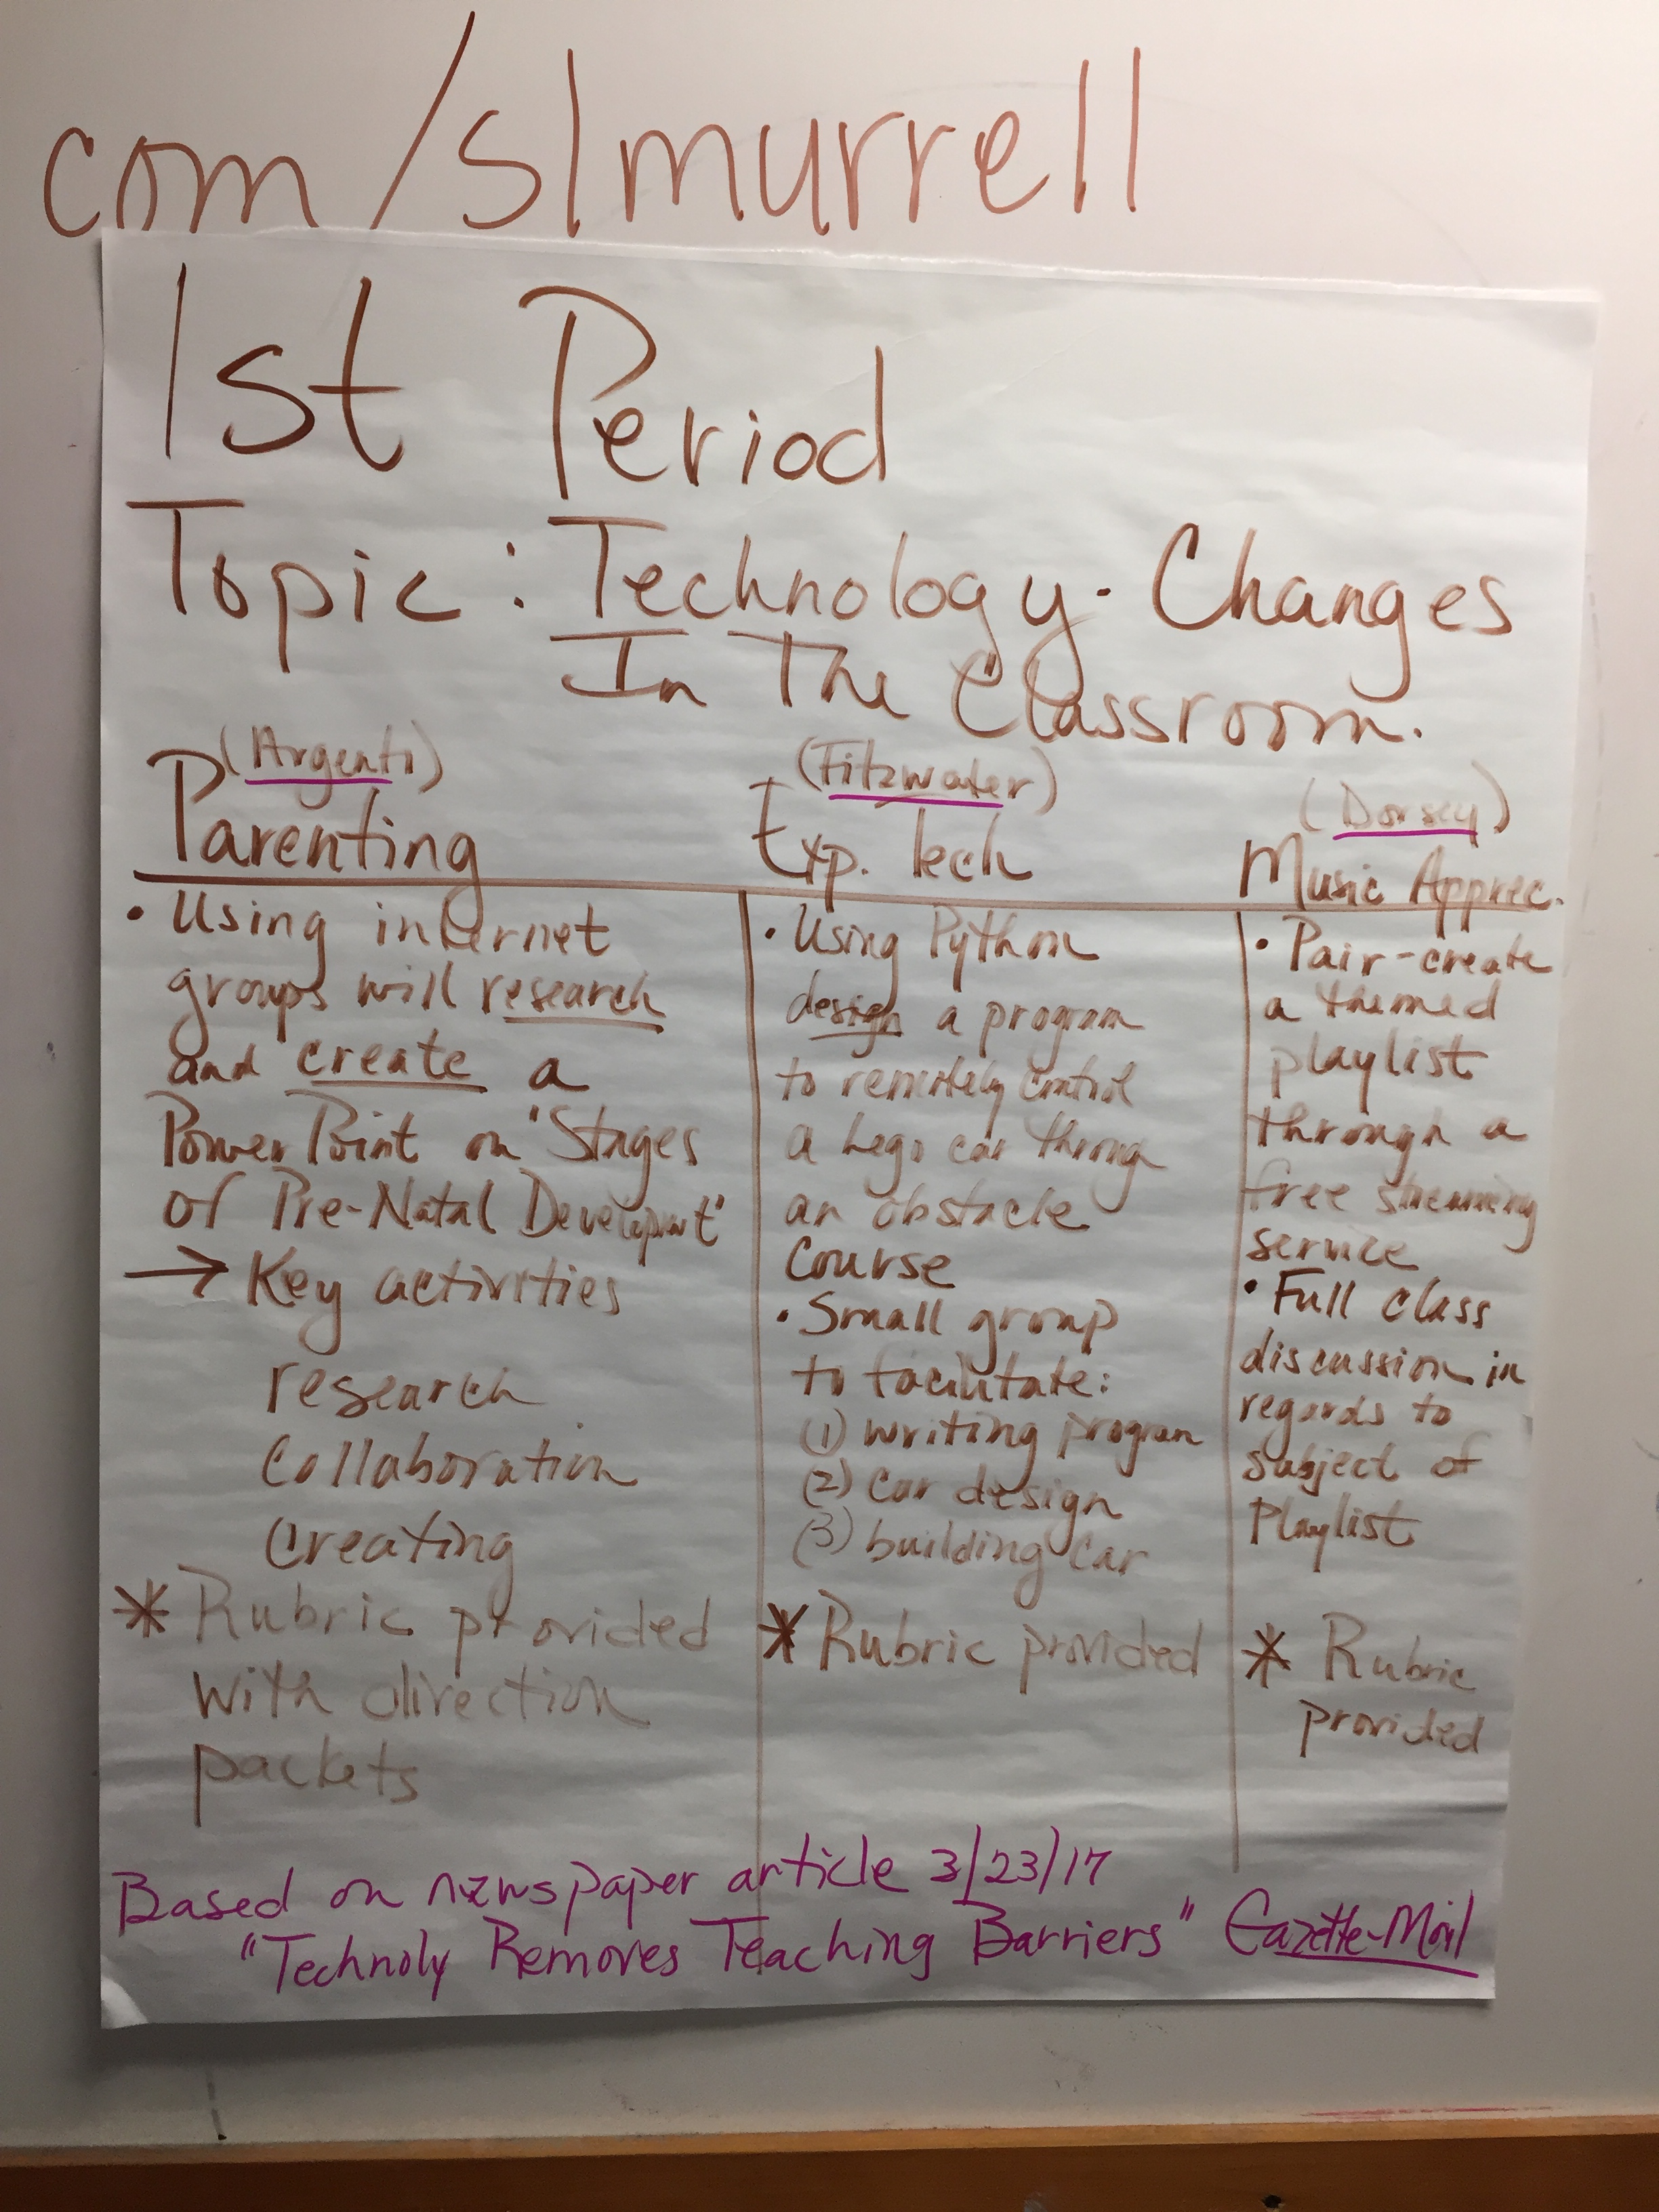 com/slmurrell
1st Period
Topic: Technology. Changes
In The Classroom.
(Argento)
Parenting
• Using internet
groups will research
and create a
PowerPoint on "Stages
of Pre-Natal Development"
→ Key activities
research
Collaboration
Creating
* Rubric provided
with direction
packets
(Fitzwater)
Exp. Tech
• Using Python
design a program
to remotely control
a Lego car through
an obstacle
Course
• Small group
to facilitate:
(1) writing program
(2) car design
(3) building car
* Rubric provided
(Dorsey)
Music Apprec.
• Pair-create
a themed
playlist
through a
free streaming
service
• Full class
discussion in
regards to
subject of
Playlist
* Rubric
provided
Based on newspaper article 3/23/17
"Technoly Removes Teaching Barriers" Gazette-Mail